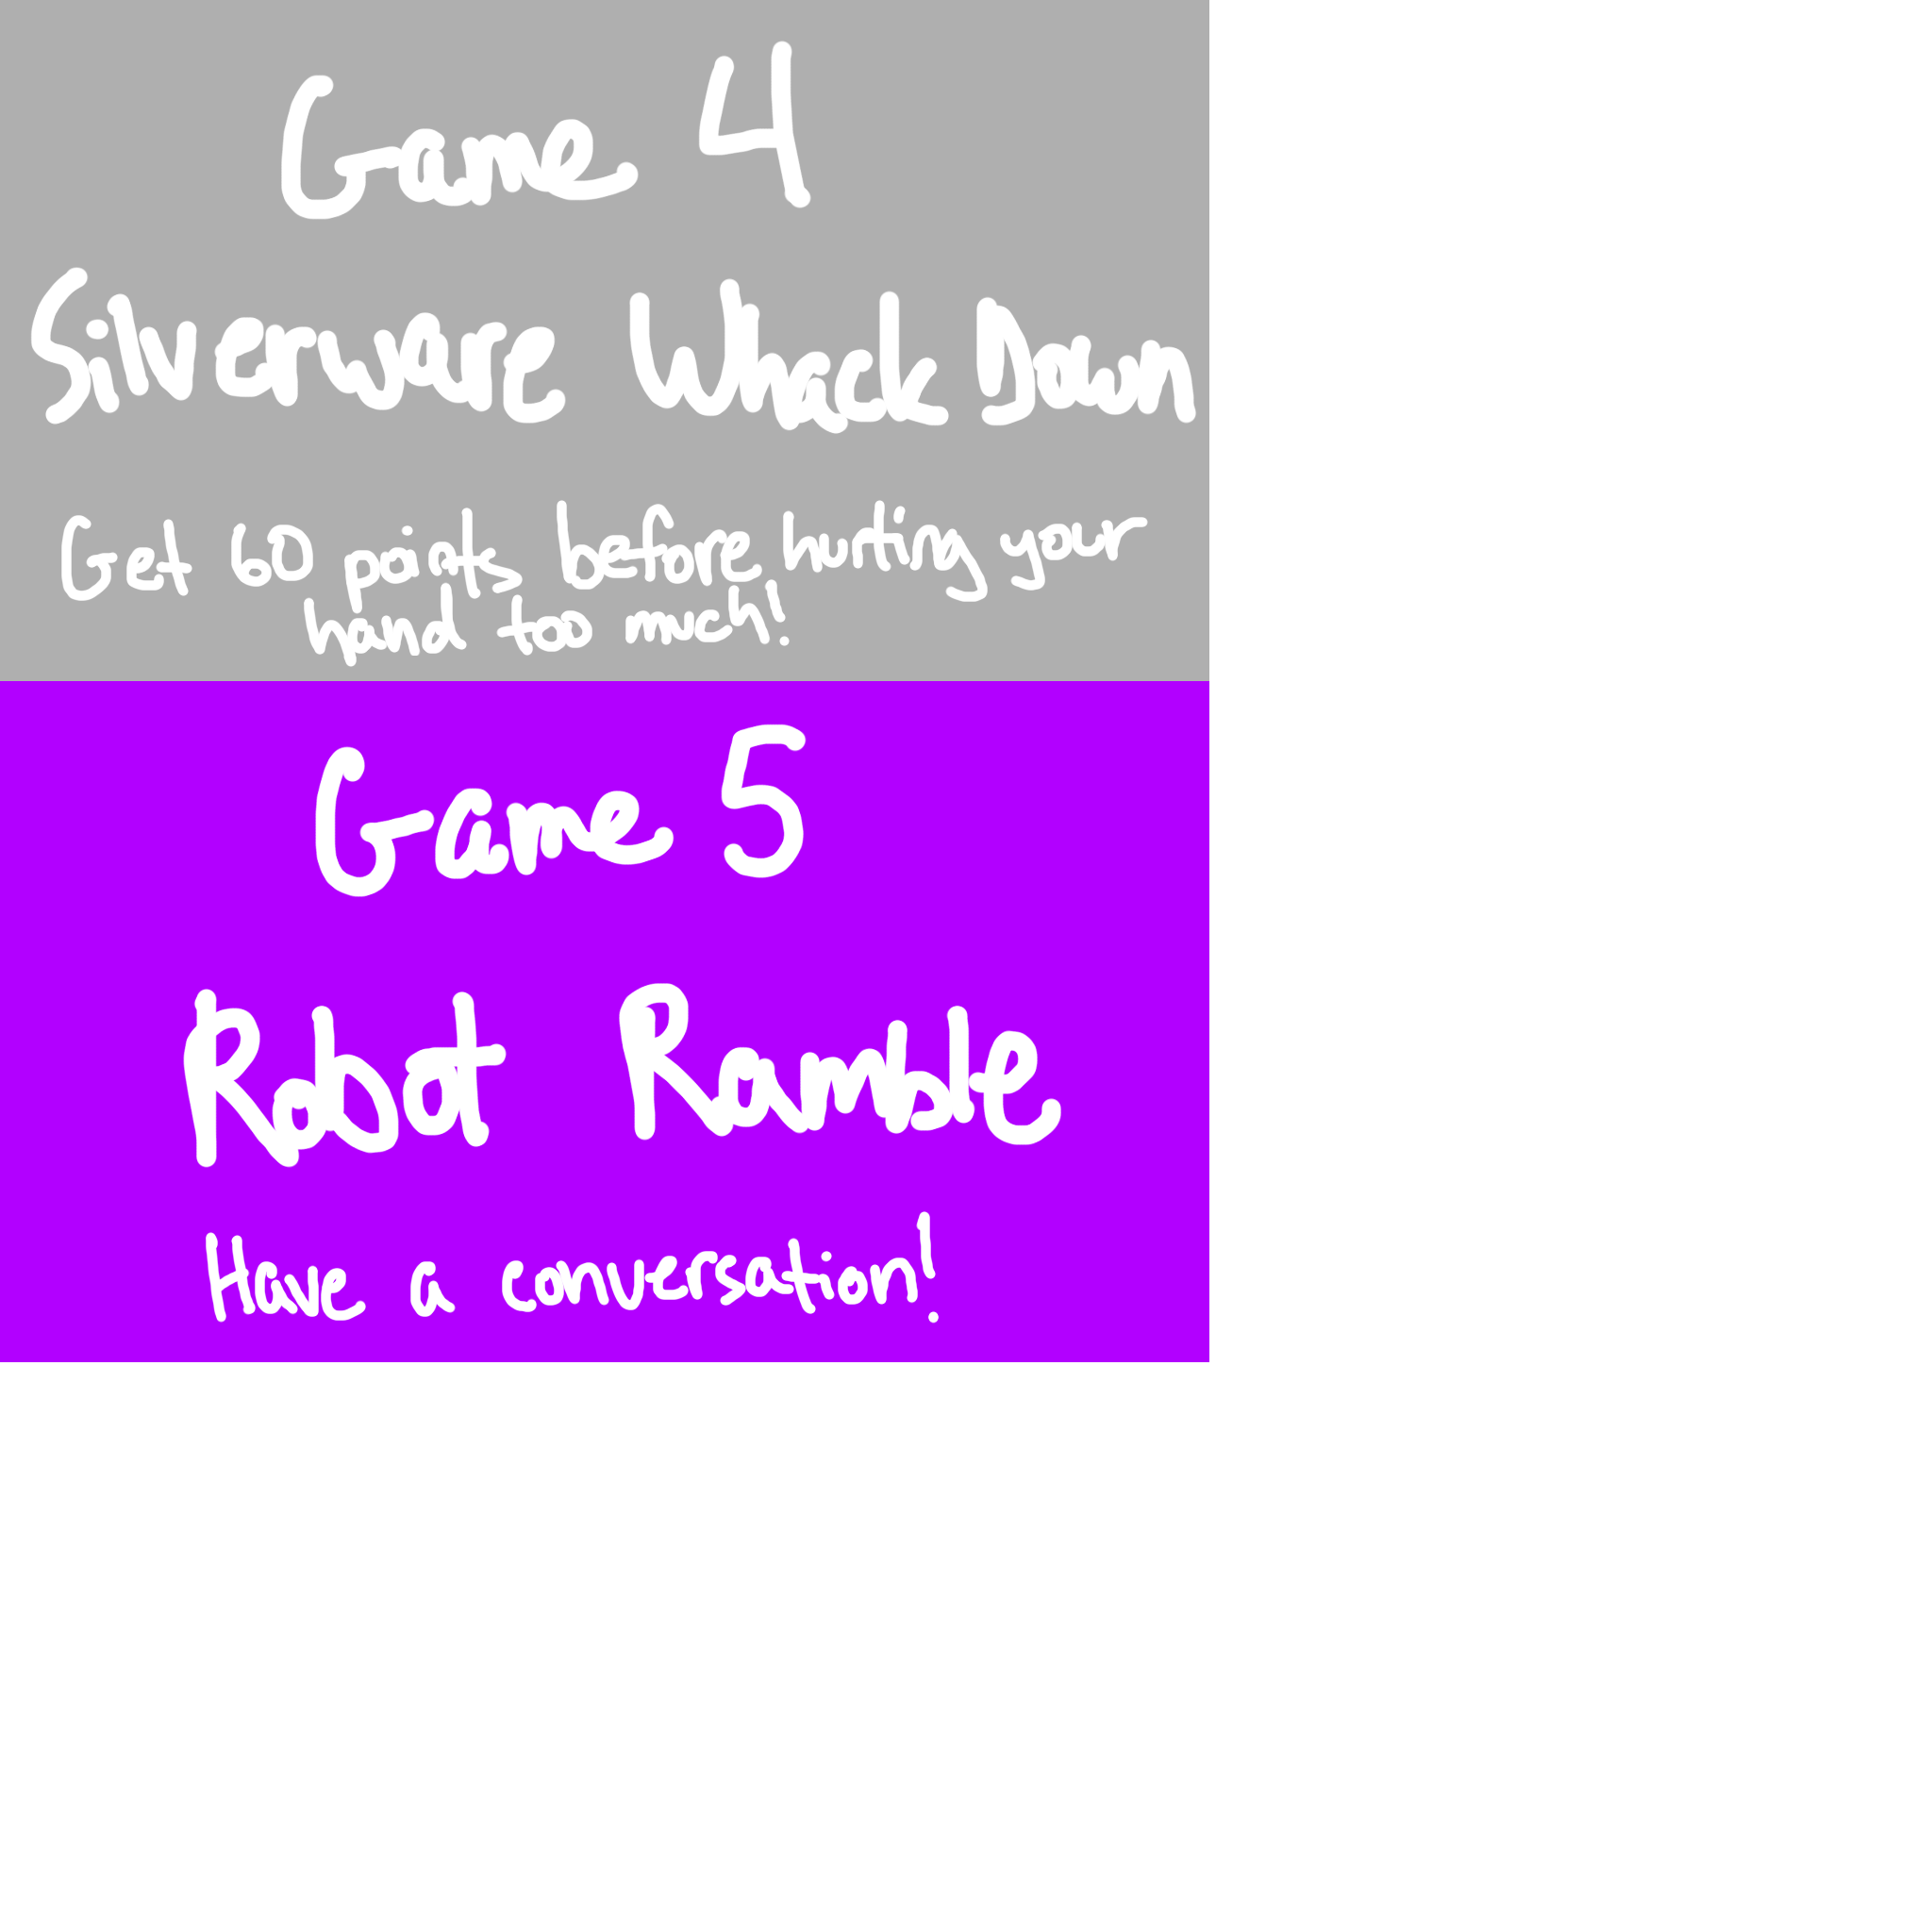 Game 4
Silverware Whack Down
Get 60 points before hurting your
hand too much!
Game 5
Robot Ramble
Have a conversation!